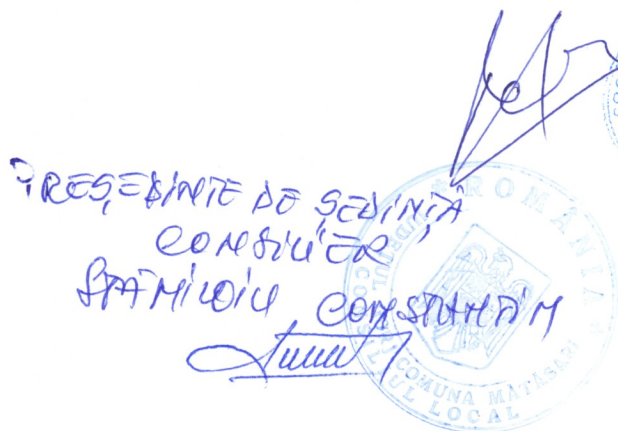 PREȘEDINTE DE ȘEDINȚĂ
CONSILIER
STĂNILOIU CONSTANTIN
ROMÂNIA
JUDEȚUL
COMUNA MĂTĂSARI
CONSILIUL LOCAL